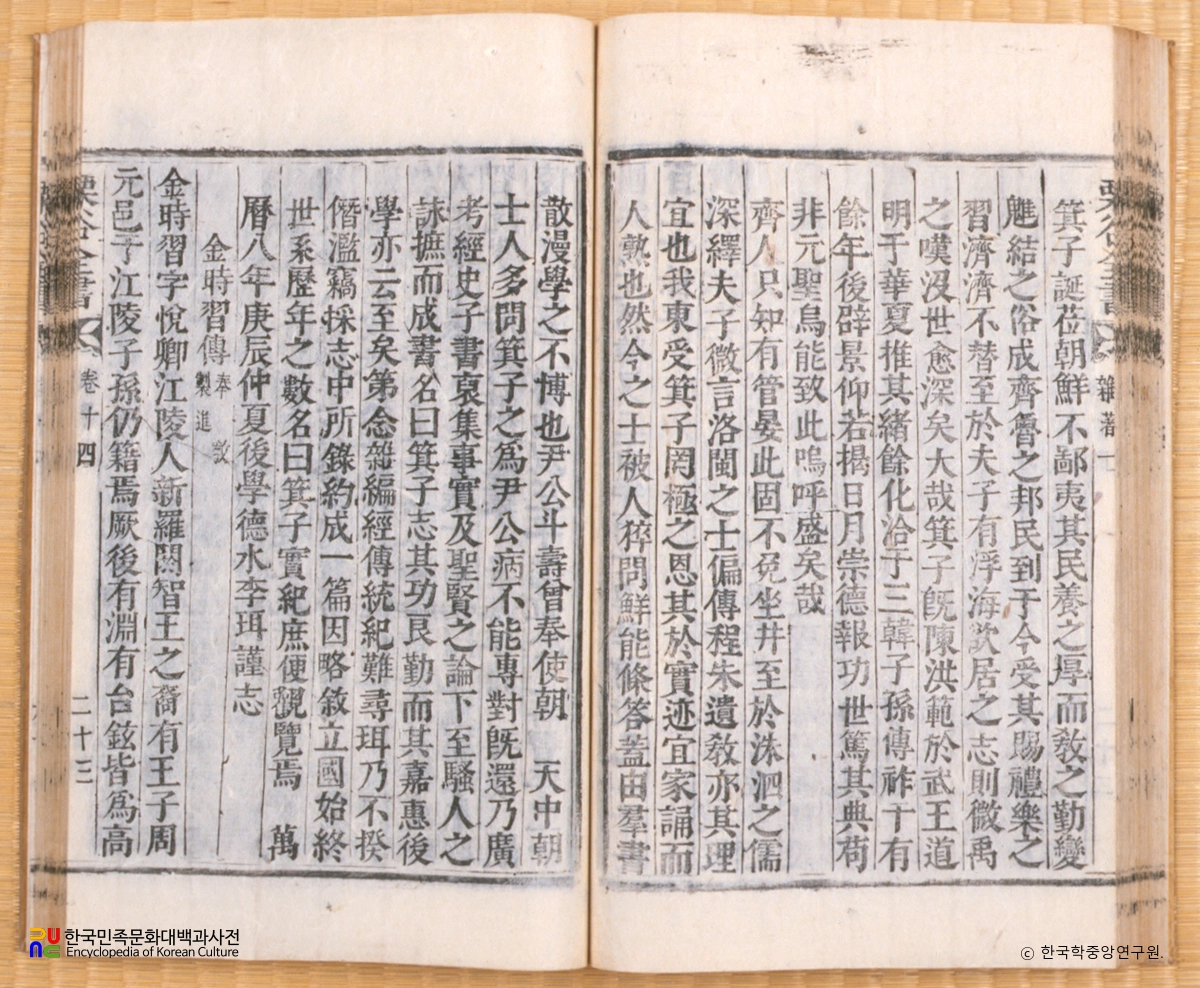 箕子誕莅朝鮮不鄙夷其民養之厚而敎之勤變
魋結之俗成齊魯之邦民到于今受其賜禮樂之
習濟濟不替至於夫子有浮海欲居之志則微禹
之嘆沒世愈深矣大哉箕子旣陳洪範於武王道
明于華夏推其緖餘化洽于三韓子孫傳祚千有
餘年後辟景仰若揭日月崇德報功世篤其典苟
非元聖烏能致此嗚呼盛矣哉
齊人只知有管晏此固不免坐井至於洙泗之儒
深繹夫子微言洛閩之士偏傳程朱遺敎亦其理
宜也我東受箕子罔極之恩其於實迹宜家誦而
人熟也然今之士被人猝問鮮能條答蓋由羣書
散漫學之不博也尹公斗壽曾奉使朝 天中朝
士人多問箕子之爲尹公病不能專對旣還乃廣
考經史子書裒集事實及聖賢之論下至騷人之
詠摭而成書名曰箕子志其功良勤而其嘉惠後
學亦云至矣第念雜編經傳統紀難尋珥乃不揆
僭濫竊採志中所錄約成一篇因略敘立國始終
世系歷年之數名曰箕子實紀庶便觀覽焉 萬
曆八年庚辰仲夏後學德水李珥謹志
金時習傳 奉 敎
製進
金時習字悅卿江陵人新羅閼智王之裔有王子周
元邑于江陵子孫仍籍焉厥後有淵有台鉉皆爲高
栗谷全書 卷十四 二十三
雜著一
한국민족문화대백과사전
Encyclopedia of Korean Culture
© 한국학중앙연구원.